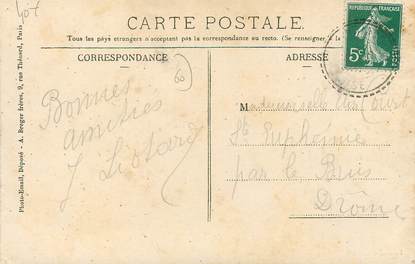 407
CARTE POSTALE.
Tous les pays étrangers n'acceptent pas la correspondance au recto. (Se renseigner à la
CORRESPONDANCE
ADRESSE
REPUBLIQUE FRANÇAISE
5c
POSTES
Photo-Email, Déposé - A. Berger frères, 9, rue Thénard, Paris
Bonnes
amitiés
J. Liotard
Mademoiselle
Ste Euphémie
par le Buis
Drôme